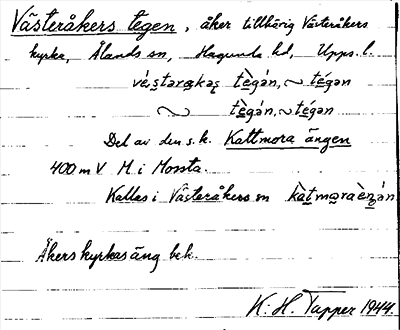 Västeråkers tegen, åker tillhörig Västeråkers
kyrka, Ålands sn, Hagunda hd, Upps. l.
vé̀staro̱kaş tè̱gán, ~ té̱gən
~ tè̱gán, ~ té̱gən
Del av den s.k. Kattmora ängen
400 m V M. i Mossta.
Kallas i Västeråkers sn kàtmo̱raèŋán
Åkers kyrkas äng bek.
K. H. Tapper 1944.